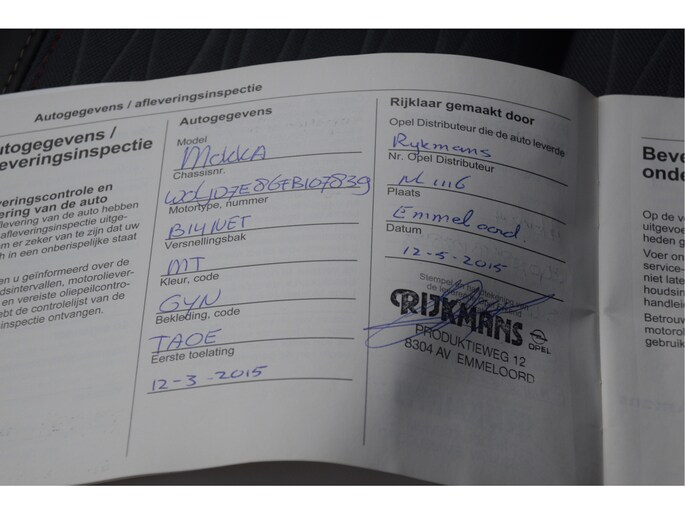 Autogegevens / afleveringsinspectie
utogegevens /
leveringsinspectie
veringscontrole en
ering van de auto
flevering van de auto hebben
afleveringsinspectie uitge-
m er zeker van te zijn dat uw
h in een onberispelijke staat
en u geïnformeerd over de
dsintervallen, motoroliever-
en vereiste oliepeilcontro-
ebt de controlelijst van de
inspectie ontvangen.
Autogegevens
Model
MOKKA
Chassisnr.
Motortype, nummer
B14NET
Versnellingsbak
MT
Kleur, code
GYN
Bekleding, code
TAOE
Eerste toelating
12-3-2015
Rijklaar gemaakt door
Opel Distributeur die de auto leverde
Rijkmans
Nr. Opel Distributeur
M 1116
Plaats
Emmeloord.
Datum
12-5-2015
Stempel en
RIJKMANS
OPEL
PRODUKTIEWEG 12
8304 AV EMMELOORD
Beve
onde
Op de v
uitgevoe
heden g
Voer on
service-
niet late
houdsin
handleid
Betrouw
motorol
gebruik